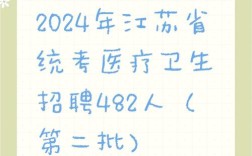 2024年江苏省
统考医疗卫生
招聘482人（
第二批）